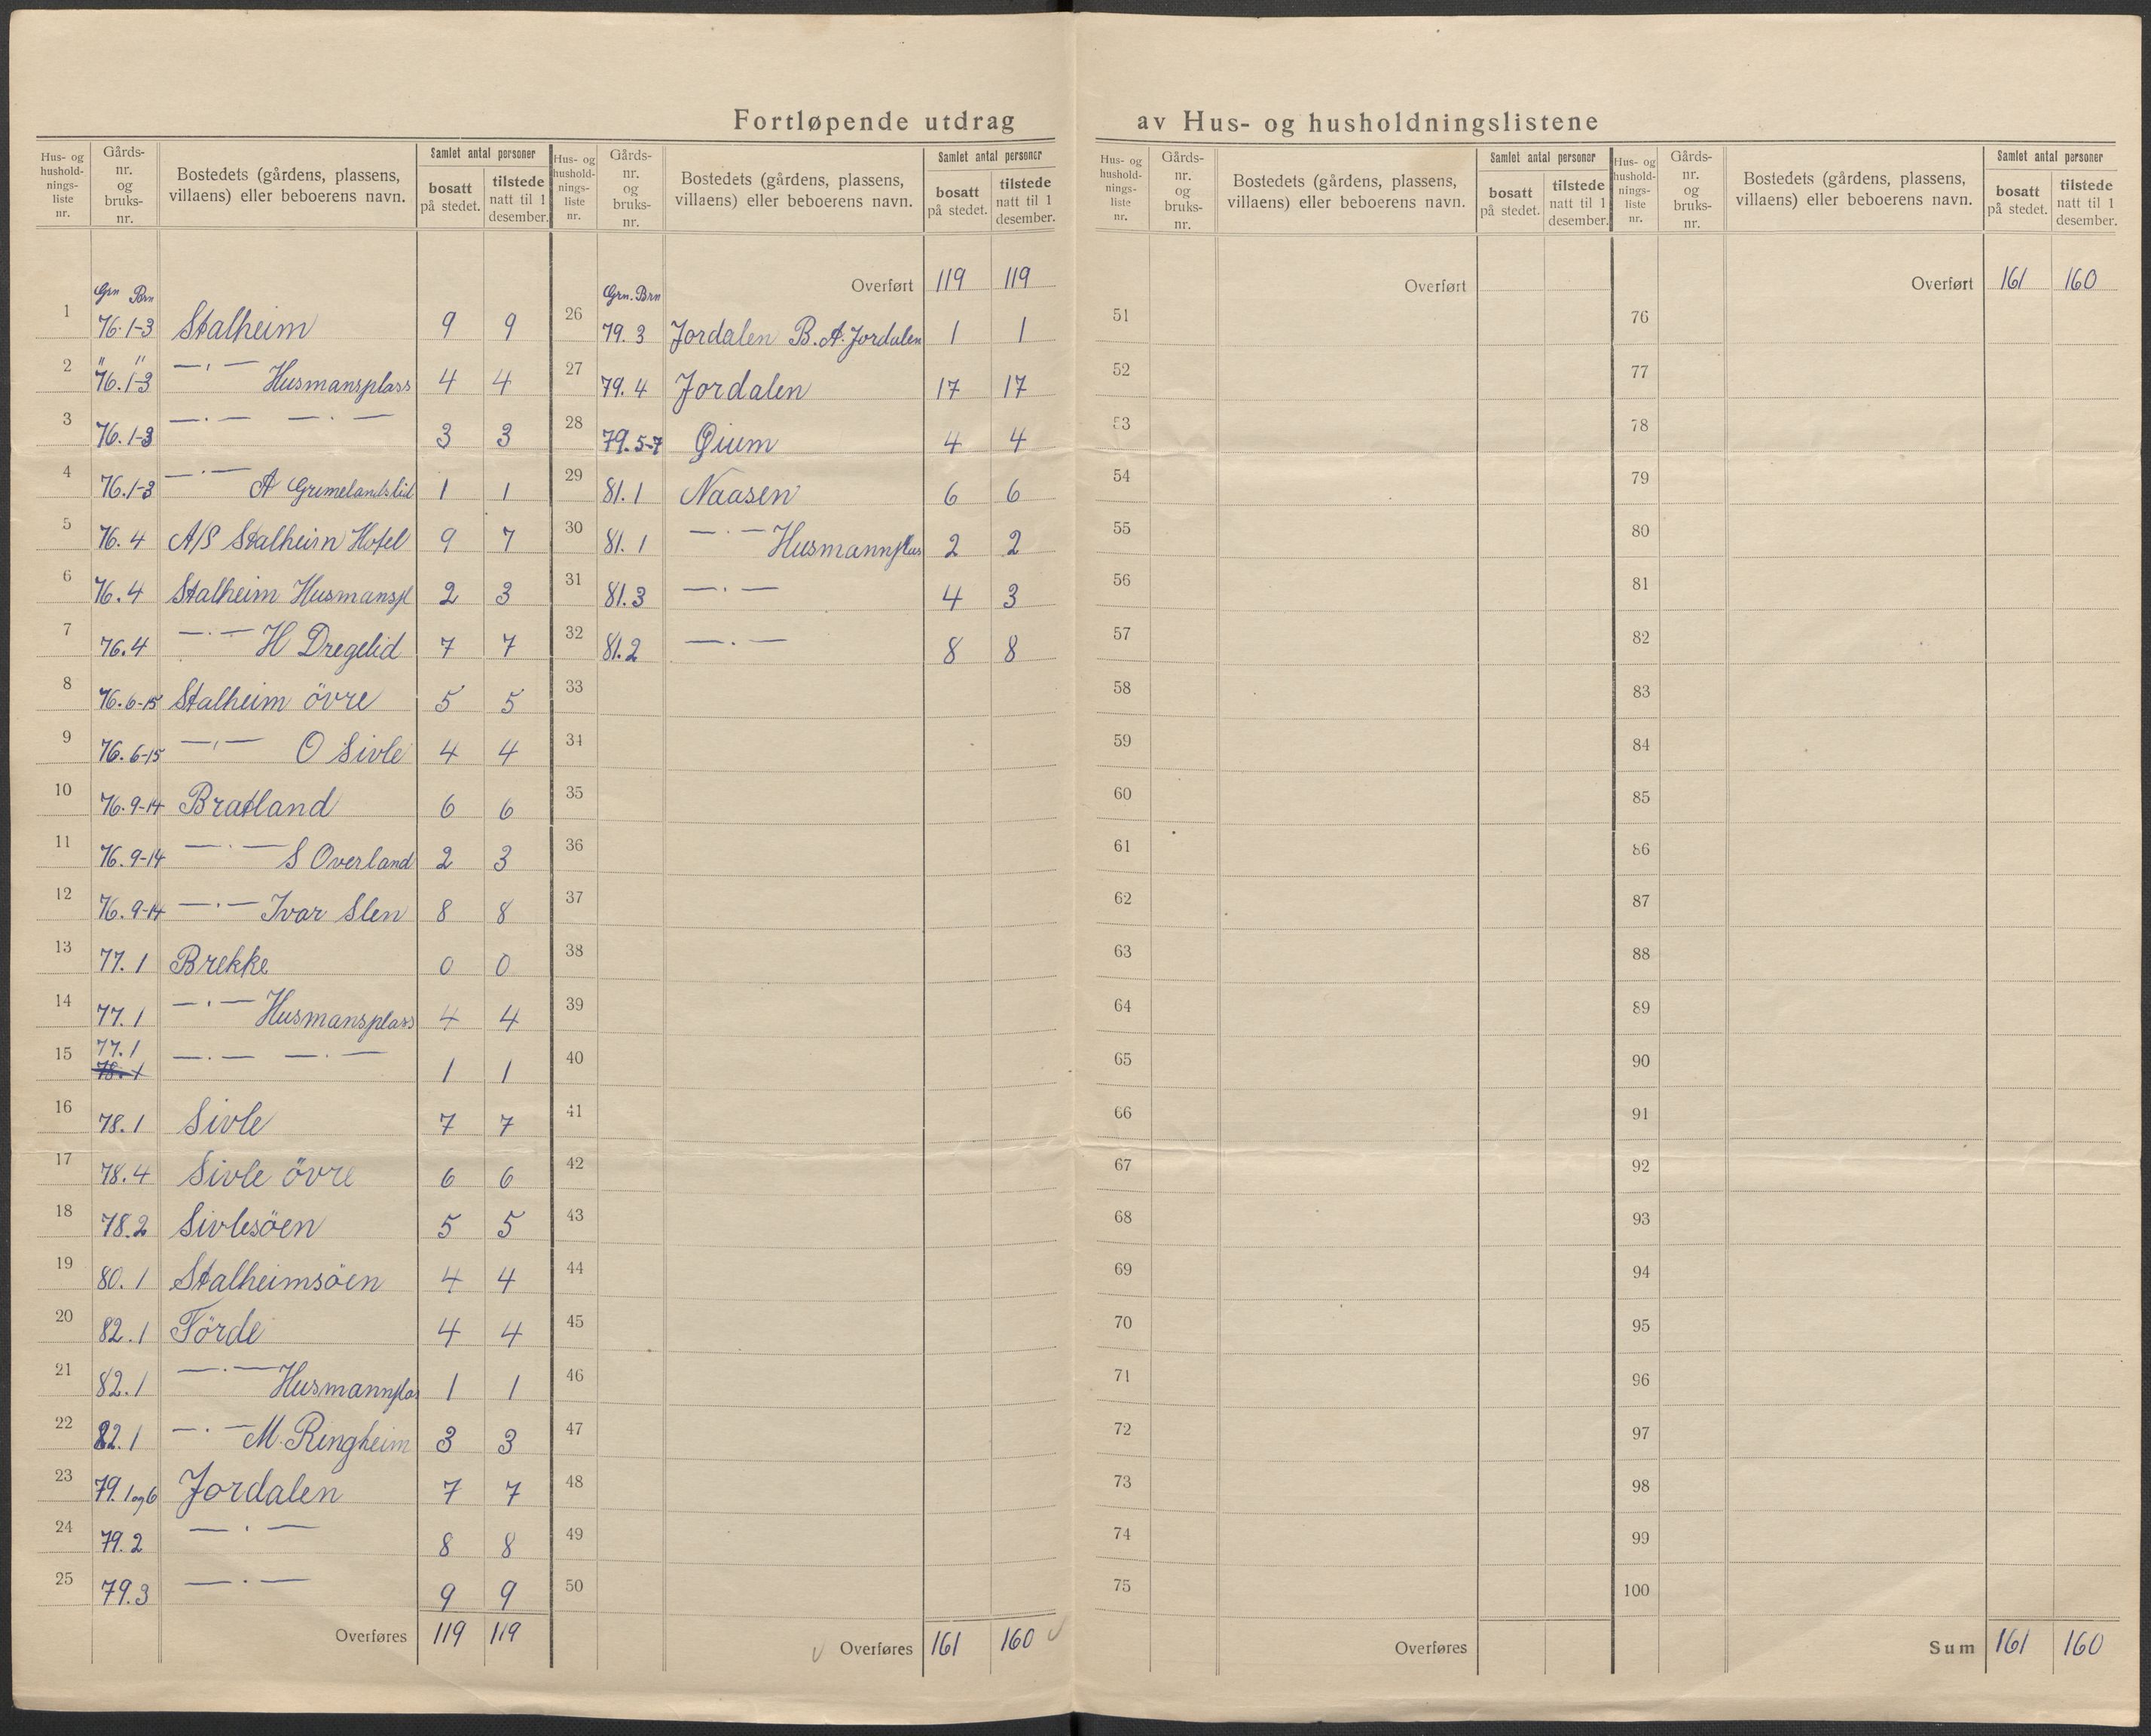 Fortløpende utdrag av Hus- og husholdningslistene
Hus- og hushold-nings-liste nr. | Gårds-nr. og bruks-nr. | Bostedets (gårdens, plassens, villaens) eller beboerens navn. | Samlet antal personer | bosatt på stedet. | tilstede natt til 1 desember.
Grn Brn
1 76.1-3 Stalheim 9 9
" "
2 76.1-3 —"— Husmansplass 4 4
3 76.1-3 —"— —"— 3 3
4 76.1-3 —"— A Grimelandslid 1 1
5 76.4 A/S Stalheim Hotel 9 7
6 76.4 Stalheim Husmanspl 2 3
7 76.4 —"— H Dregelid 7 7
8 76.6-15 Stalheim övre 5 5
9 76.6-15 —"— O Sivle 4 4
10 76.9-14 Bratland 6 6
11 76.9-14 —"— S Overland 2 3
12 76.9-14 —"— Ivar Slen 8 8
13 77.1 Brekke 0 0
14 77.1 —"— Husmansplass 4 4
15 77.1 78.1 —"— —"— 1 1
16 78.1 Sivle 7 7
17 78.4 Sivle övre 6 6
18 78.2 Sivlesöen 5 5
19 80.1 Stalheimsöen 4 4
20 82.1 Förde 4 4
21 82.1 —"— Husmannplas 1 1
22 82.1 —"— M. Ringheim 3 3
23 79.1og6 Jordalen 7 7
24 79.2 —"— 8 8
25 79.3 —"— 9 9
Overføres 119 119
Hus- og hushold-nings-liste nr. | Gårds-nr. og bruks-nr. | Bostedets (gårdens, plassens, villaens) eller beboerens navn. | Samlet antal personer | bosatt på stedet. | tilstede natt til 1 desember.
Overført 119 119
Grn. Brn
26 79.3 Jordalen B.A. Jordalen 1 1
27 79.4 Jordalen 17 17
28 79.5-7 Øium 4 4
29 81.1 Naasen 6 6
30 81.1 —"— Husmannplas 2 2
31 81.3 —"— 4 3
32 81.2 —"— 8 8
33
34
35
36
37
38
39
40
41
42
43
44
45
46
47
48
49
50
Overføres 161 160
Hus- og hushold-nings-liste nr. | Gårds-nr. og bruks-nr. | Bostedets (gårdens, plassens, villaens) eller beboerens navn. | Samlet antal personer | bosatt på stedet. | tilstede natt til 1 desember.
Overført
51
52
53
54
55
56
57
58
59
60
61
62
63
64
65
66
67
68
69
70
71
72
73
74
75
Overføres
Hus- og hushold-nings-liste nr. | Gårds-nr. og bruks-nr. | Bostedets (gårdens, plassens, villaens) eller beboerens navn. | Samlet antal personer | bosatt på stedet. | tilstede natt til 1 desember.
Overført 161 160
76
77
78
79
80
81
82
83
84
85
86
87
88
89
90
91
92
93
94
95
96
97
98
99
100
Sum 161 160